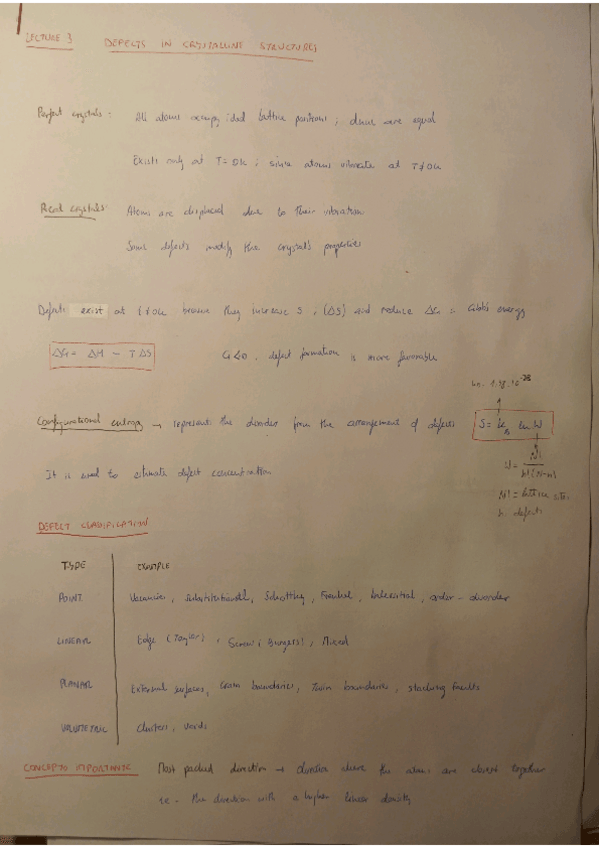 LECTURE 3 DEFECTS IN CRYSTALLINE STRUCTURES
Perfect crystals: All atoms occupy ideal lattice positions; are equal
Exists only at T=0K; since atoms vibrate at T≠0K
Real crystals: Atoms are displaced due to their vibration
Some defects modify the crystal's properties
Defects exist at T≠0K because they increase S; (ΔS) and reduce ΔG = Gibbs energy
ΔG = ΔH - TΔS G<0, defect formation is more favorable
Configurational entropy → represent the disorder from the arrangement of defects S = k_B ln W
It is used to estimate defect concentration
N! = lattice sites
n: defects
DEFECT CLASSIFICATION
TYPE EXAMPLE
POINT Vacancies, Substitutional, Schottky, Frenkel, Interstitial, order-disorder
LINEAR Edge (Taylor), Screw (Burgers), Mixed
PLANAR External surfaces, Grain boundaries, Twin boundaries, stacking faults
VOLUMETRIC Clusters, Voids
CONCEPTS IMPORTANTS Most packed direction → direction where the atoms are closest together
ie. the direction with a higher linear density